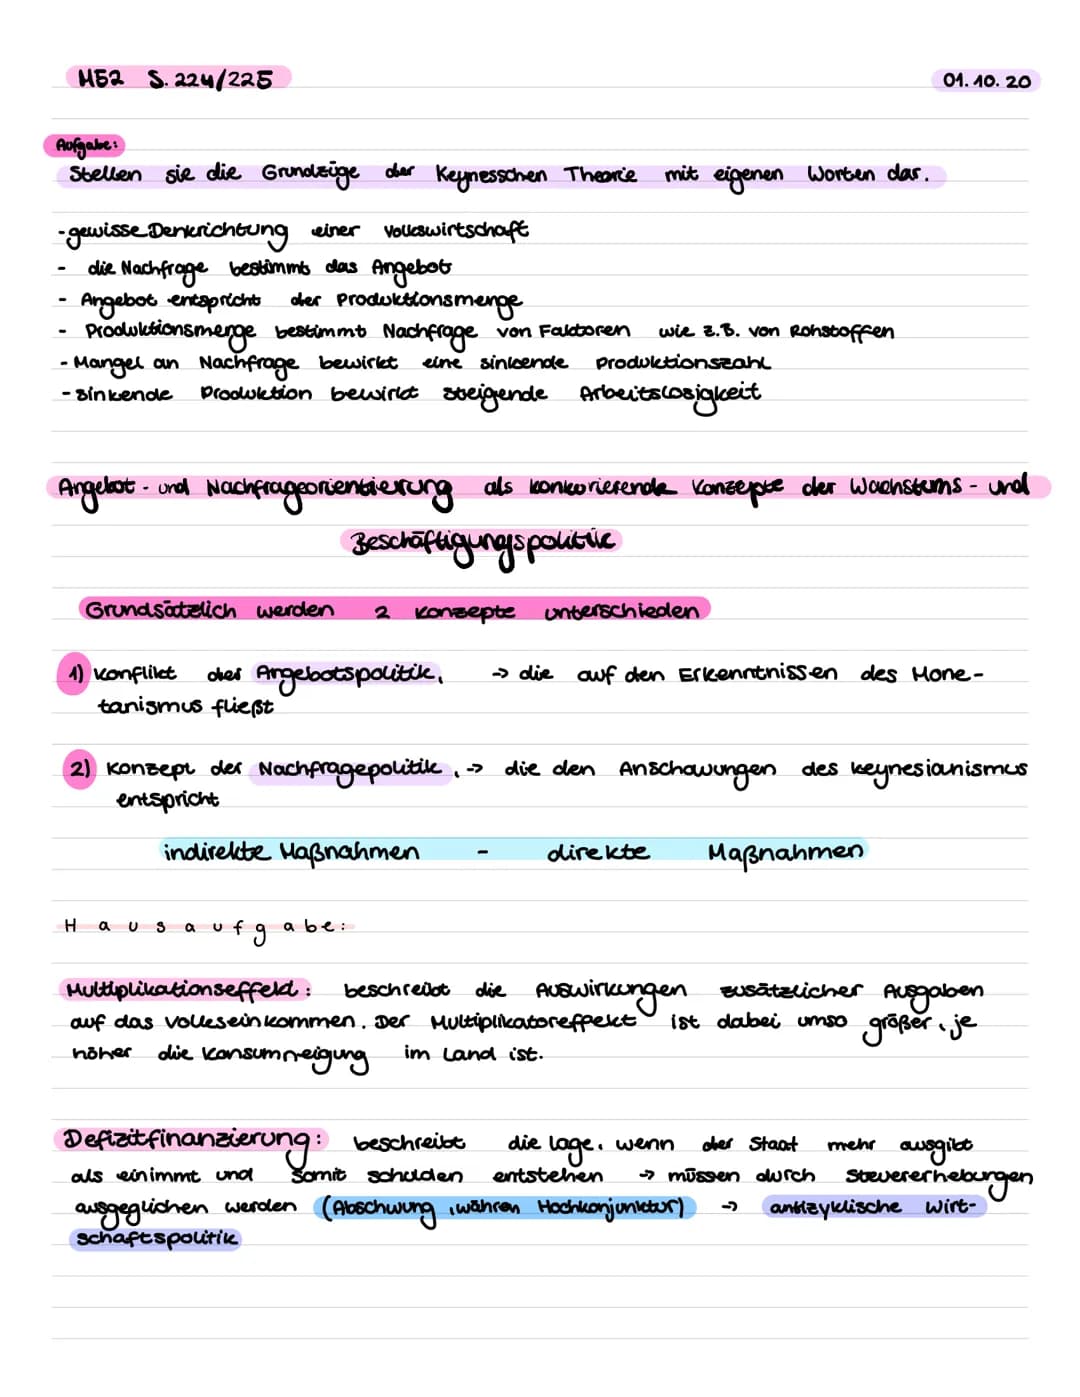 M52 S. 224/225
01. 10. 20
Aufgabe:
Stellen sie die Grundzüge der Keynesschen Theorie mit eigenen Worten dar.
- gewisse Denkrichtung einer Volkswirtschaft
- die Nachfrage bestimmt das Angebot
- Angebot entspricht der Produktionsmenge
- Produktionsmenge bestimmt Nachfrage von Faktoren wie z.B. von Rohstoffen
- Mangel an Nachfrage bewirkt eine sinkende Produktionszahl
- sinkende Produktion bewirkt steigende Arbeitslosigkeit
Angebot - und Nachfrageorientierung als konkurierende Konzepte der Wachstums - und
Beschäftigungspolitik
Grundsätzlich werden 2 Konzepte unterschieden
1) Konflikt der Angebotspolitik, -> die auf den Erkenntnissen des Mone-
tanismus fließt
2) Konzept der Nachfragepolitik, -> die den Anschauungen des keynesianismus
entspricht
indirekte Maßnahmen - direkte Maßnahmen
Hausaufgabe:
Multiplikationseffekt: beschreibt die Auswirkungen zusätzlicher Ausgaben
auf das Volkseinkommen. Der Multiplikatoreffekt ist dabei umso größer, je
höher die Konsumneigung im Land ist.
Defizitfinanzierung: beschreibt die lage, wenn der Staat mehr ausgibt
als einimmt und somit schulden entstehen -> müssen durch Steuererhebungen
ausgeglichen werden (Abschwung, währen Hochkonjunktur) -> antizyklische Wirt-
schaftspolitik